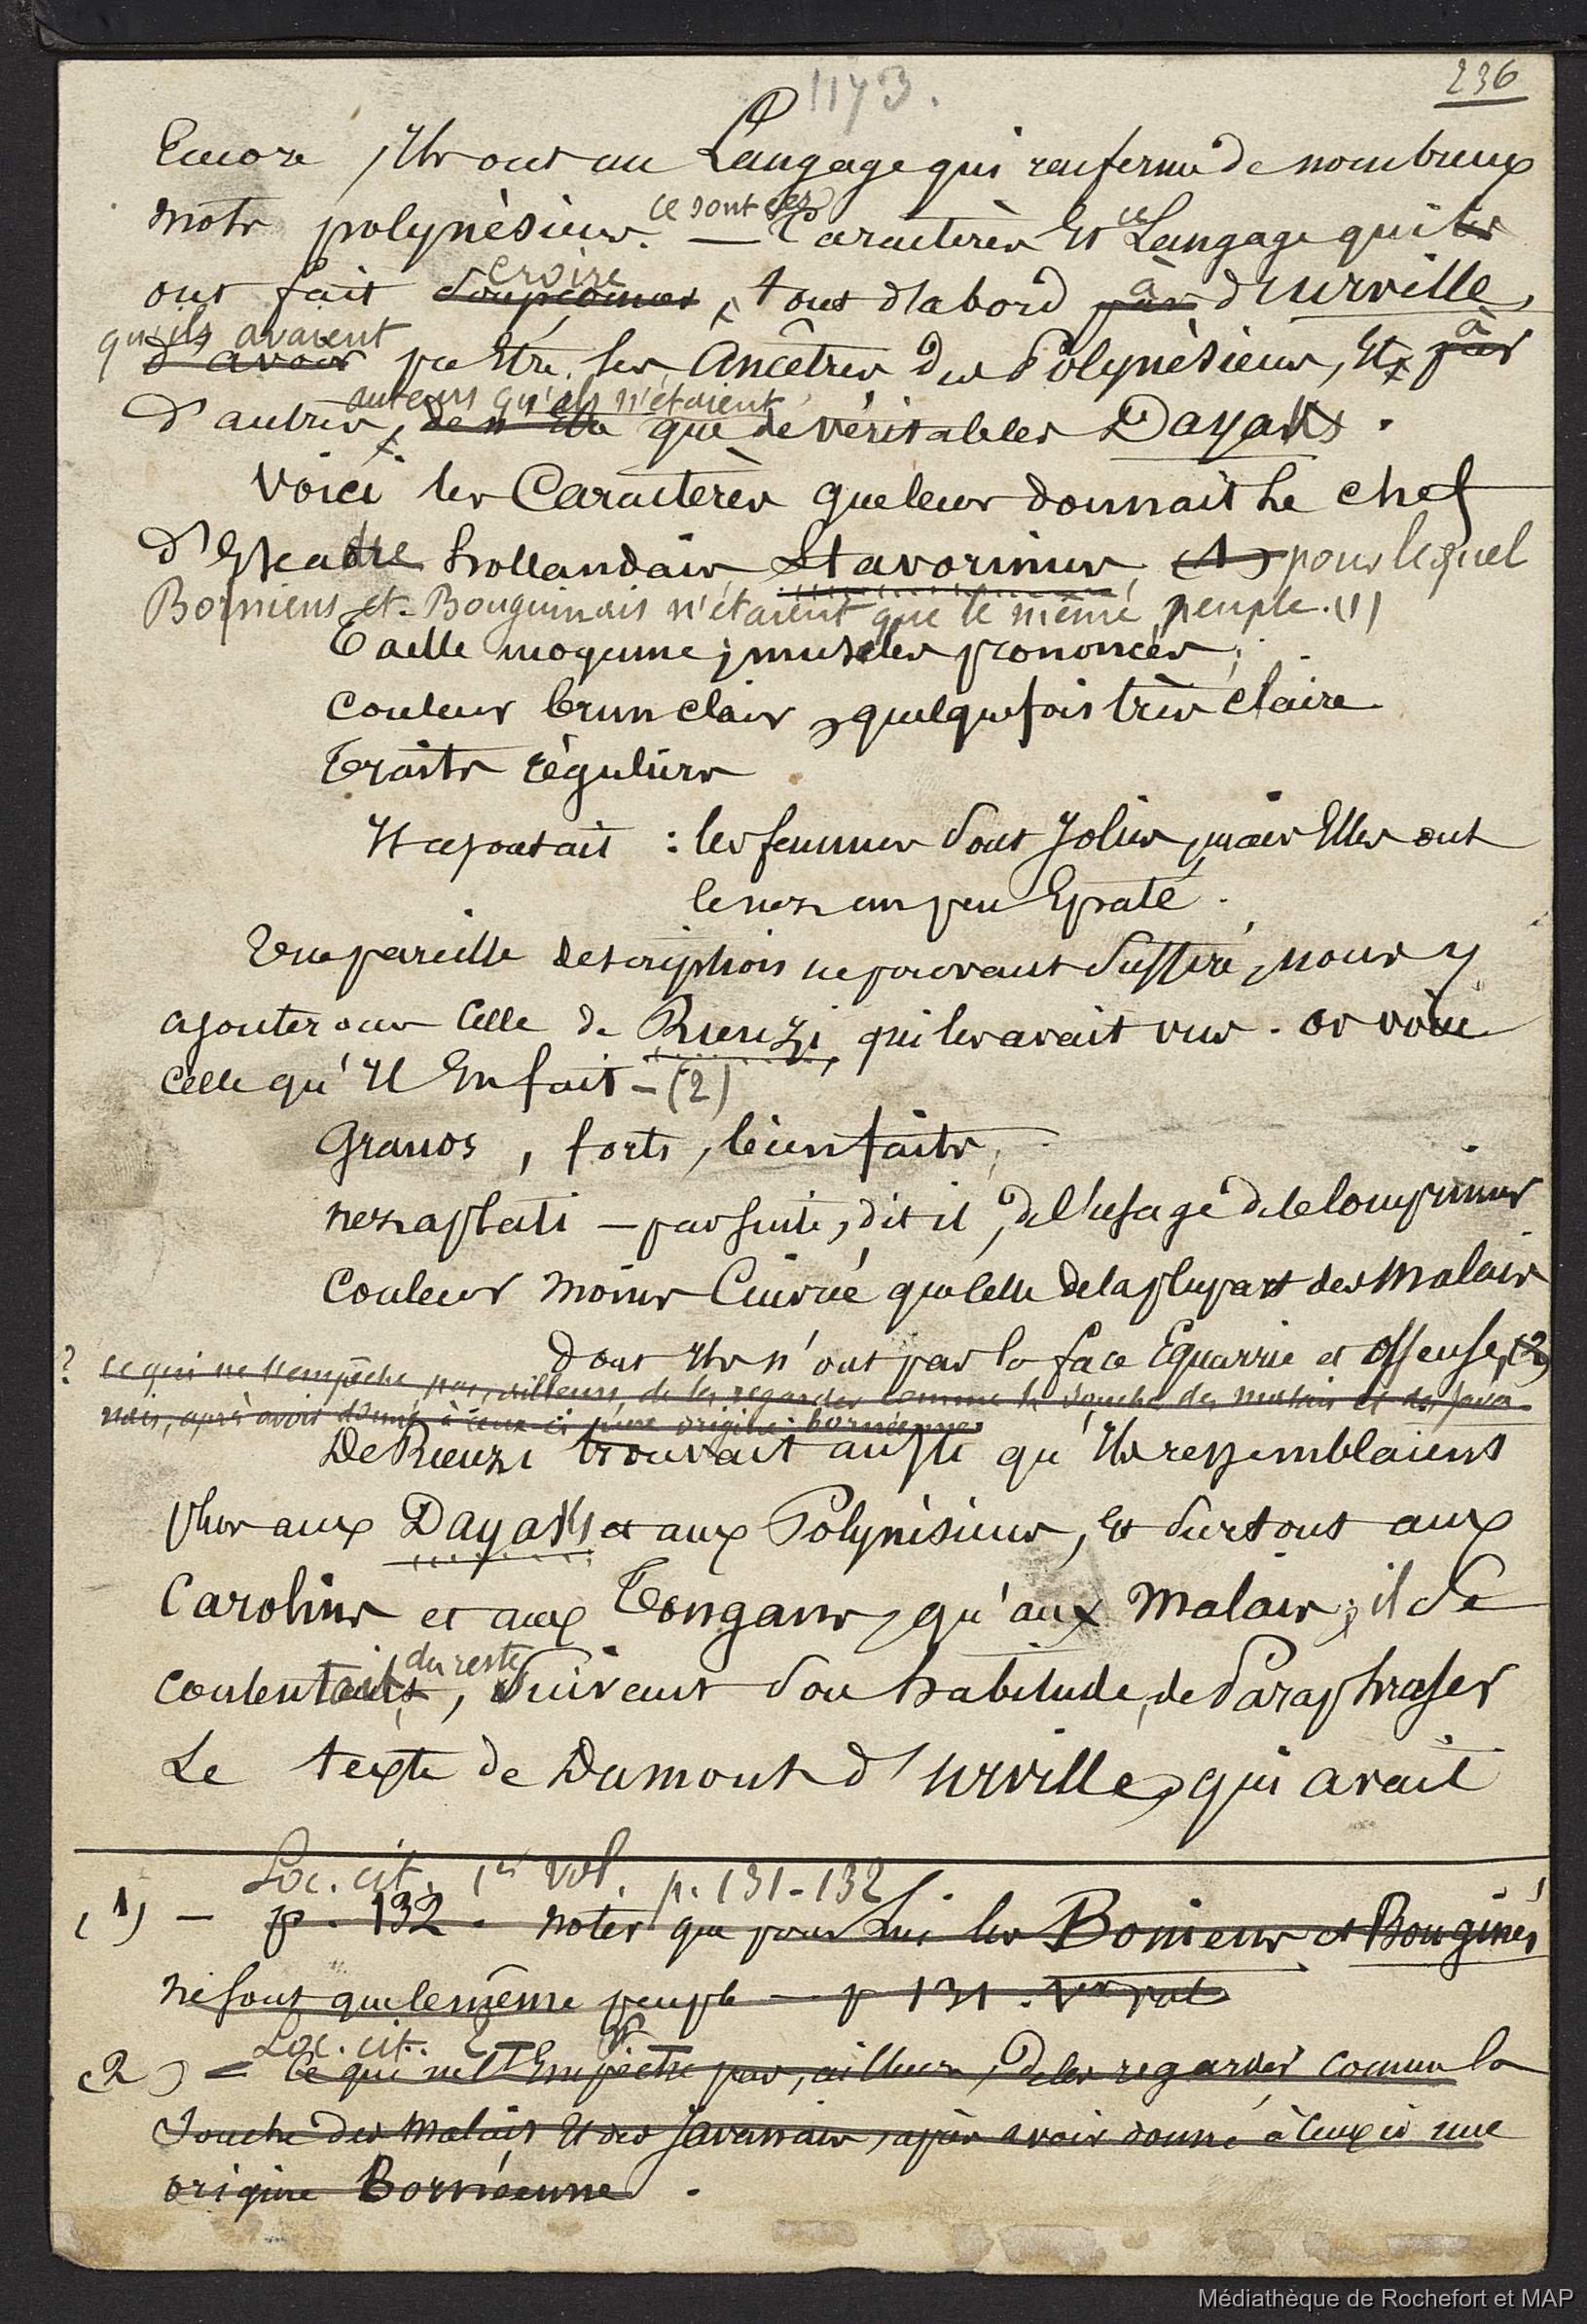 1173.
236
Encore, Ils ont un Langage qui renferme de nombreux
mots polynésiens. ce sont ces
— Caractères Et ce Langage qui les
ont fait soupçonner croire, tout d'abord par à d'urville,
qu'ils avaient
d'avoir pu Etre les Ancêtres des Polynésiens, Et par à
auteurs qu'ils n'étaient
d'autres, de n'être que de véritables Dayaks.
Voici les Caractères que leur donnait Le chef
d'Escadre hollandais Stavorinus, (1) pour lequel
Borniens et Bouguinais n'étaient que le même peuple. (1)
Taille moyenne; muscles prononcés;
Couleur brun clair, quelquefois très claire
Traits réguliers
Il ajoutait : les femmes sont Jolies, mais Elles ont
le nez un peu Epaté.
Une pareille description ne pouvant suffire, nous y
ajouterons celle de Rienzi, qui les avait vus. or voici
celle qu'Il En fait – (2)
Grands, forts, bien faits,
nez aplati – par suite, dit il, de l'usage de le comprimer
Couleur moins Cuivrée que celle de la plupart des Malais
dont Ils n'ont pas la face Equarrie et osseuse, (2)
? ce qui ne l'empêche pas, ailleurs, de les regarder comme la souche des malais et des java-
nais, après avoir donné à ceux-ci une origine bornéenne
De Rienzi trouvait aussi qu'Ils ressemblaient
plus aux Dayaks et aux Polynésiens, Et surtout aux
Carolins et aux Tongans, qu'aux Malais; il se
contentait, du reste, suivant son habitude, de Paraphraser
Le texte de Dumont d'urville, qui avait
Loc. cit. 1er vol. p. 131-132
(1) – p. 132. noter que pour Lui les Boniens et Bouginés
ne font que le même peuple — p 131. 1er vol
Loc. cit.
(2) = Ce qui ne l'Empêche pas, ailleurs, de les regarder comme la
Souche des Malais Et des Javanais, après avoir donné à ceux ci une
origine Bornéenne.
Médiathèque de Rochefort et MAP